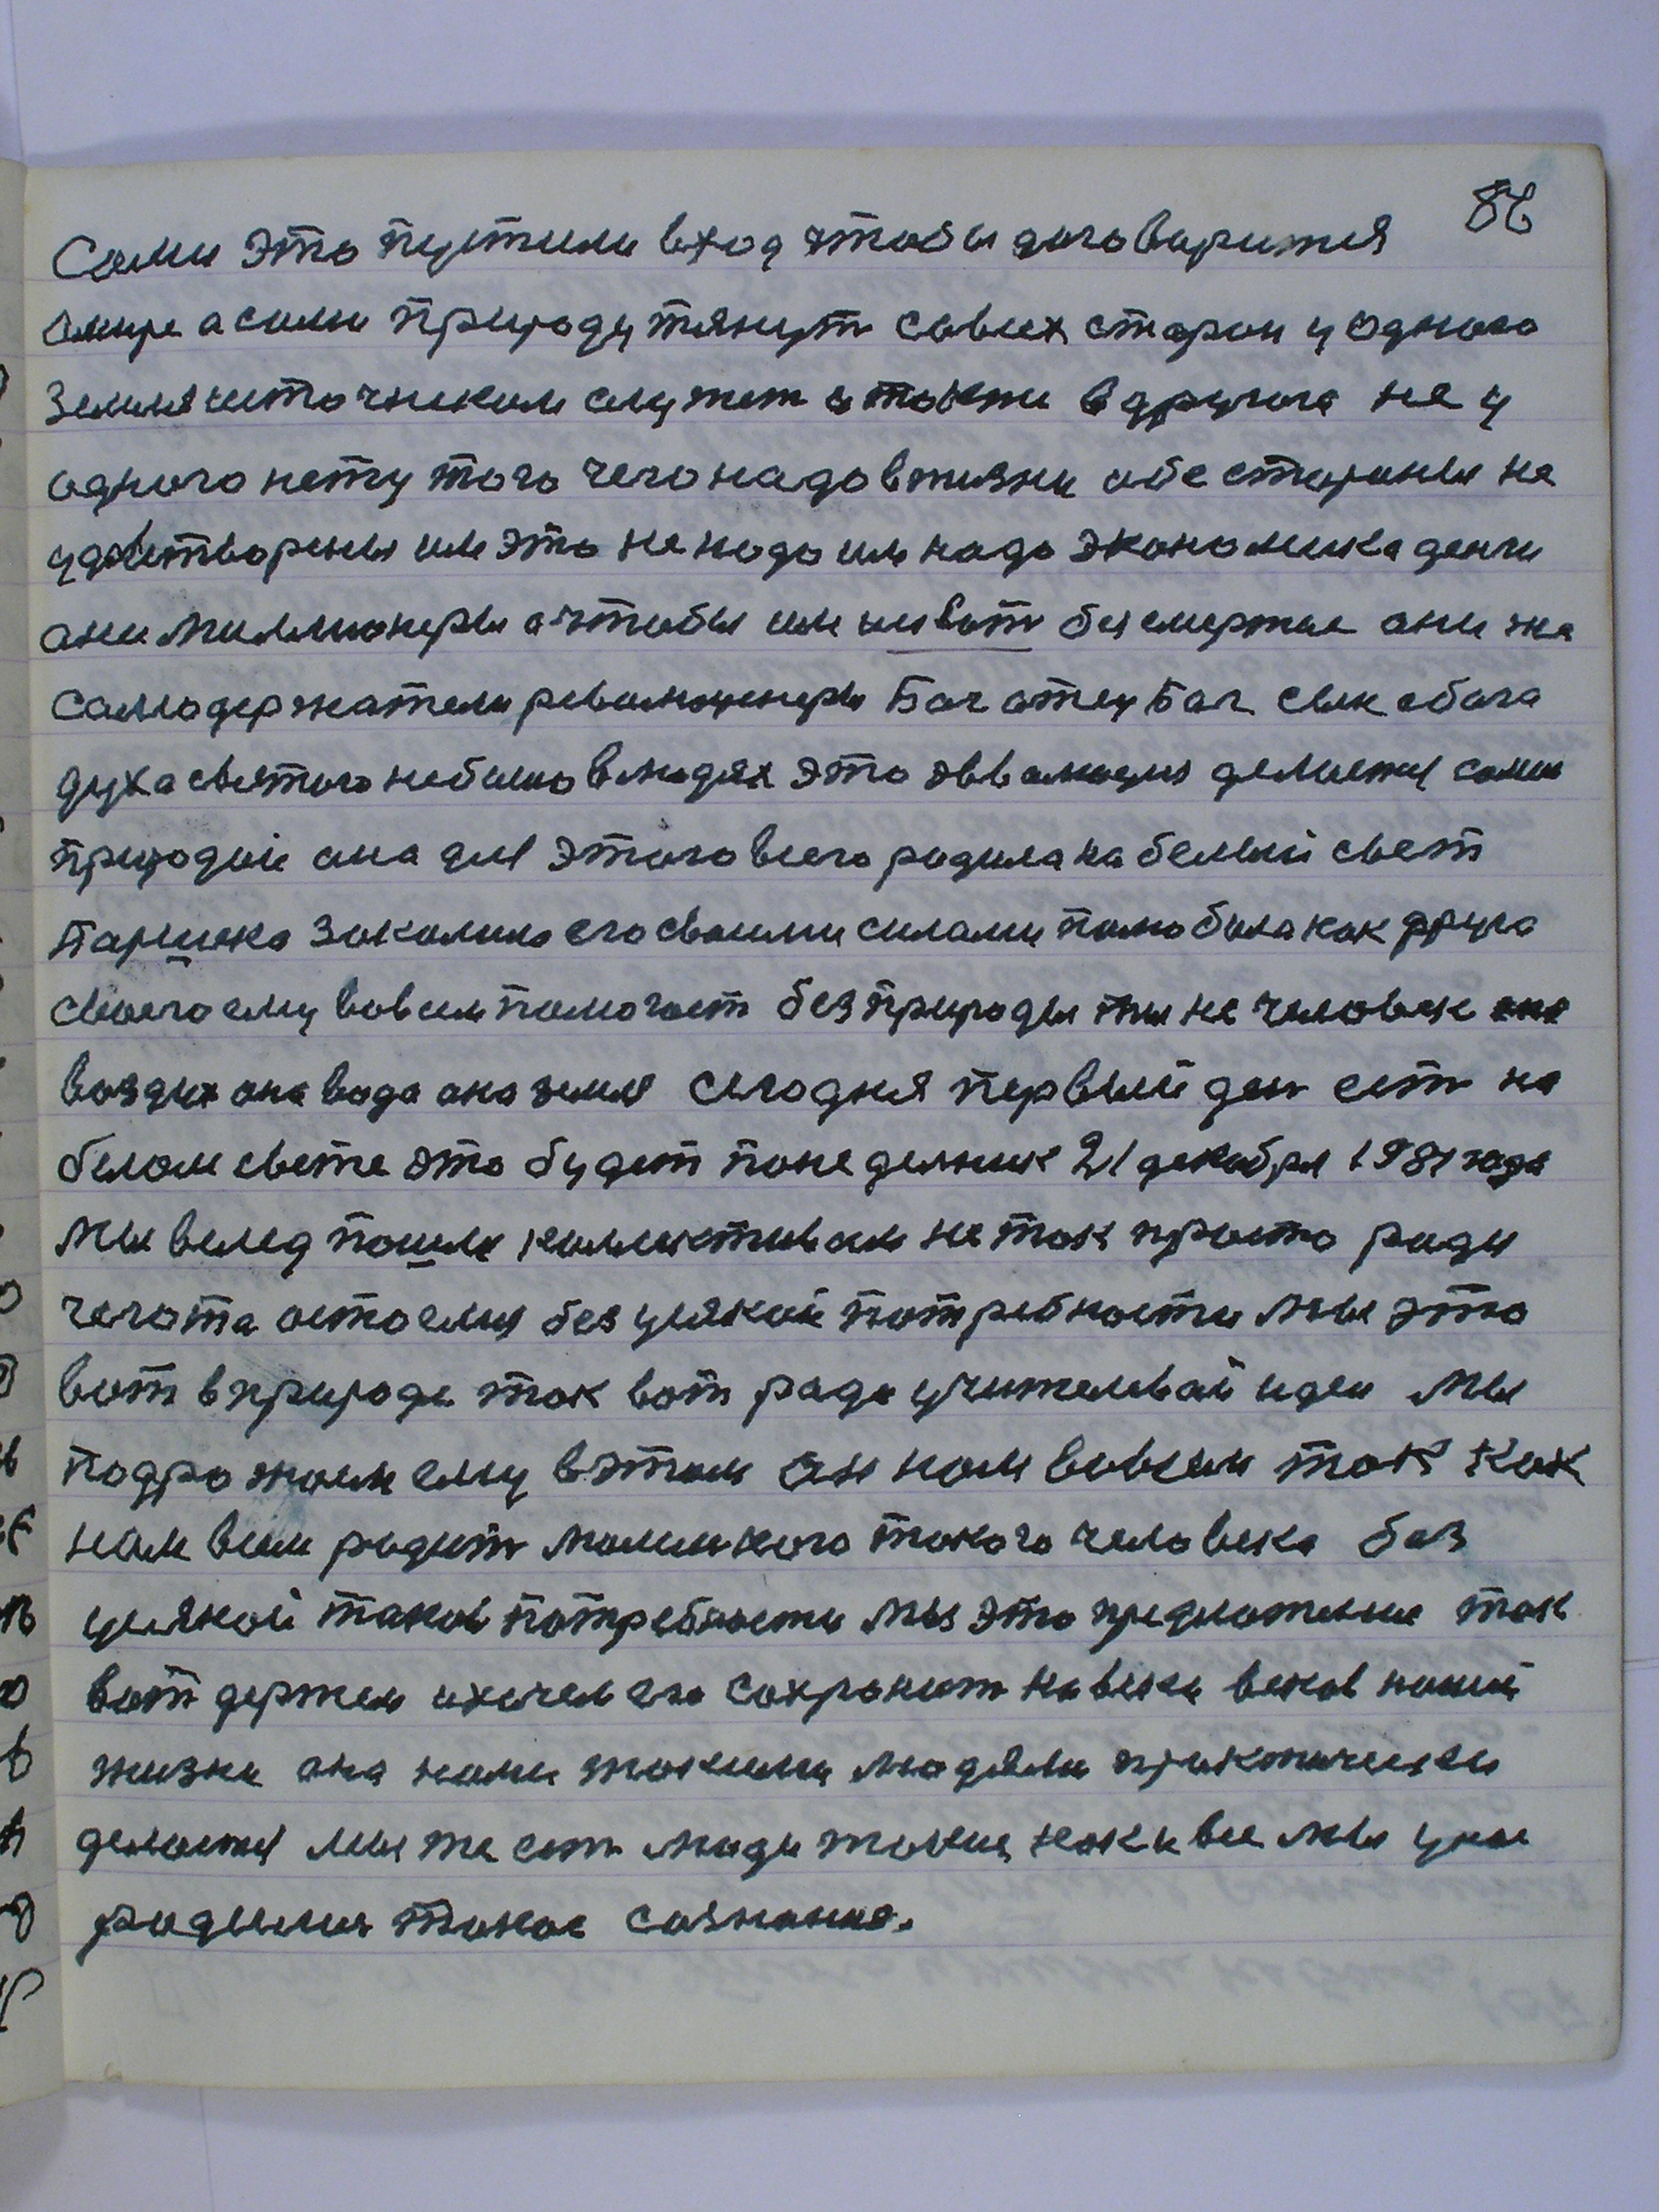 86
Сами это пустили вход чтобы договорится
омире а сами природу тянут совсех сторон у одного
земля источником служет и также вдругога не у
одного нету того чегонадовжизни обе стороны не
удовитворены им это ненадо им надо экономика денги
они миллионеры а чтобы им живот безсмертие они же
самодержатели революционеры Бог отец Бог сын абога
духа святого небыло влюдях это эвволюция делается самой
природой она для этого всего родила на белый свет
Паршека закалила егосвоими силами полюбила как друга
своего ему вовсем помогает без природы ты не человек она
воздух она вода она земля сегодня первый ден ест на
белом свете это будет понеделник 21 декабря 1981 года
Мы вслед пошли коллективом не так просто ради
чегота остоемся без усякой потребности мы это
вот вприроде так вот ради учителевай идеи мы
подрожаем ему вэтом он нам вовсем так как
нам всем родит малинкого такого человека без
усякой такой потребности мы это предложение так
вот держем ихочем его сохранит навеки веков нашей
жизни она нами такими людями практически
делается мы же ест люди такие как и все мы унас
родилися такое сознание.